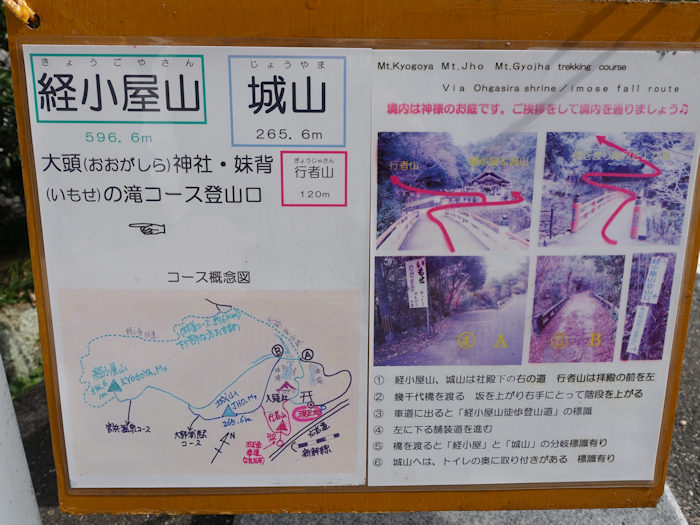 きょうごやさん
経小屋山
596.6m
じょうやま
城山
265.6m
大頭(おおがしら)神社・妹背
(いもせ)の滝コース登山口
ぎょうじゃさん
行者山
120m
コース概念図
経小屋山
596.6
KYOGOYA.Mt
城山
JHO.Mt
265.6m
大頭社
行者山
大野浦駅
コース
新幹線
B
A
Mt.Kyogoya Mt.Jho Mt.Gyojha trekking course
Via Ohgasira shrine/imose fall route
境内は神様のお庭です。ご挨拶をして境内を通りましょう♫
行者山
いもせ
④ A
B
① 経小屋山、城山は社殿下の右の道 行者山は拝殿の前を左
② 幾千代橋を渡る 坂を上がり右手にとって階段を上がる
③ 車道に出ると「経小屋山徒歩登山道」の標識
④ 左に下る舗装道を進む
⑤ 橋を渡ると「経小屋」と「城山」の分岐標識有り
⑥ 城山へは、トイレの奥に取り付きがある 標識有り